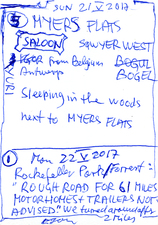 SUN 21/V 2017
5 MYERS FLATS
SALOON SAWYER WEST
IGOR from Belgium BEGUL
Antwerp BOGEL
YURI
Sleeping in the woods
next to MYERS FLATS
1 Mon 22 V 2017
Rockefeller Park/Forrest:
"ROUGH ROAD FOR 61 MILES
MOTORHOMES + TRAILERS NOT
ADVISED." We turned around after
2 Miles